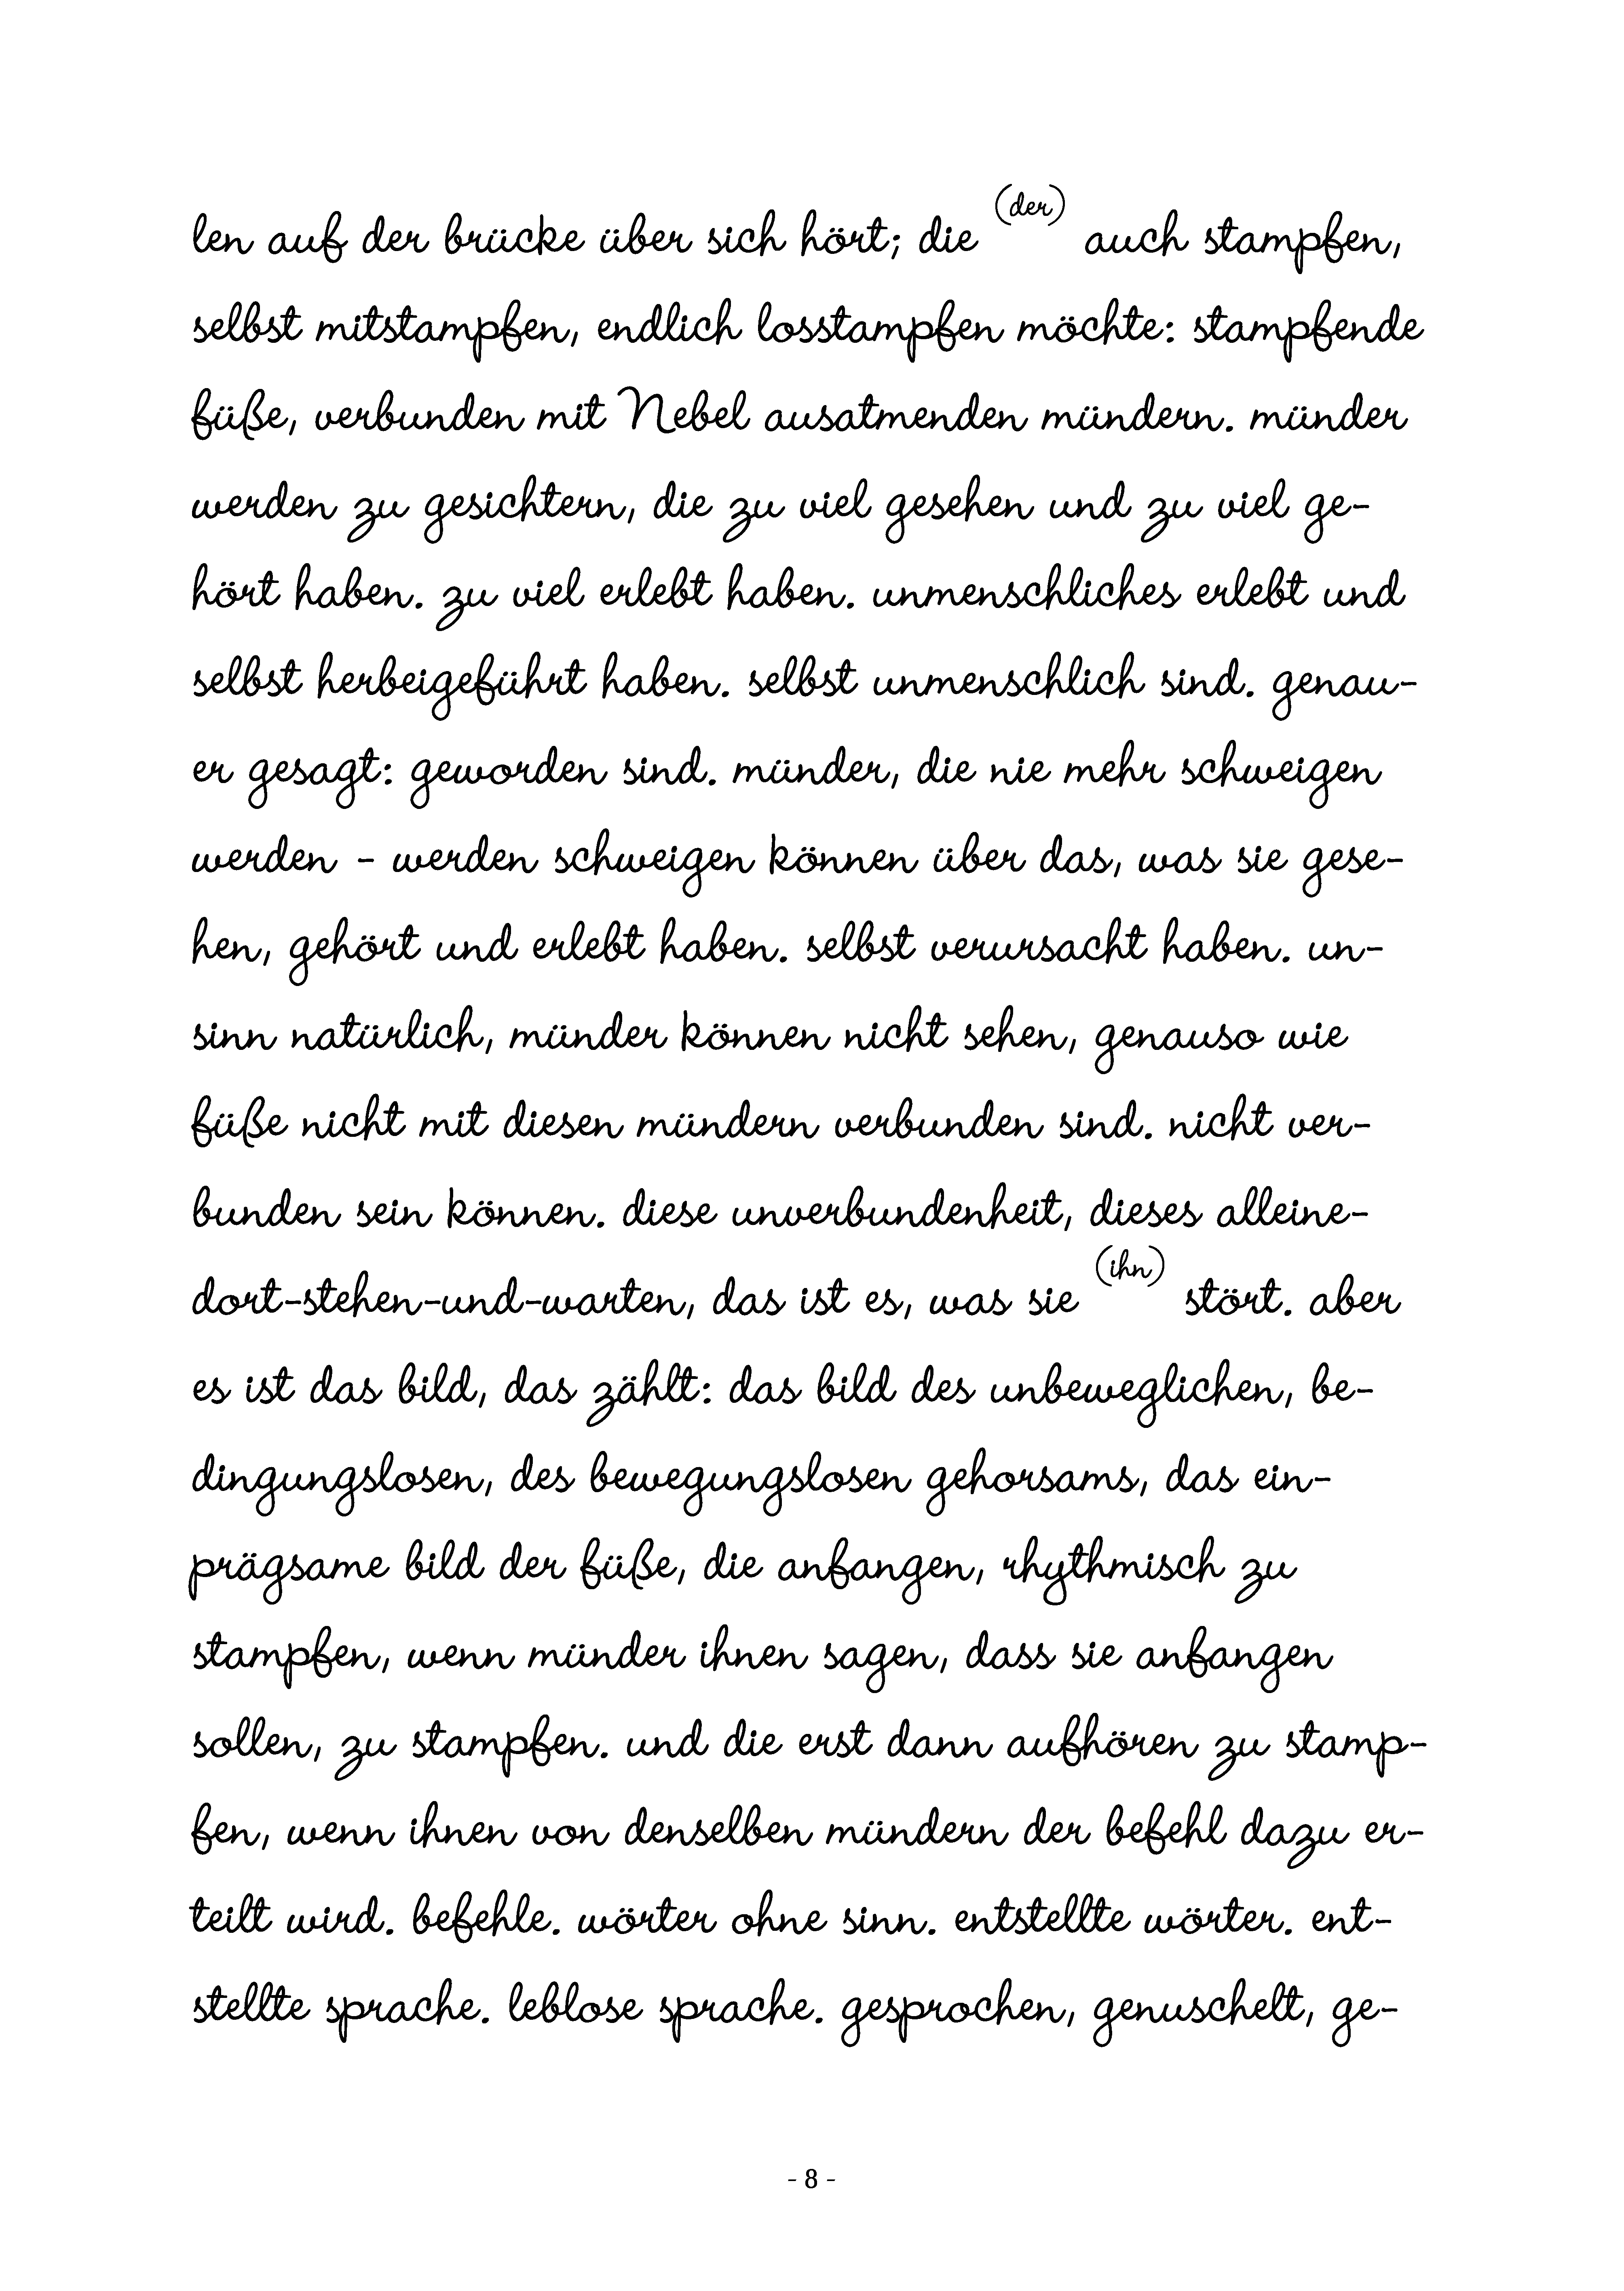 len auf der brücke über sich hört; die (der) auch stampfen,
selbst mitstampfen, endlich losstampfen möchte: stampfende
füße, verbunden mit Nebel ausatmenden mündern. münder
werden zu gesichtern, die zu viel gesehen und zu viel ge-
hört haben. zu viel erlebt haben. unmenschliches erlebt und
selbst herbeigeführt haben. selbst unmenschlich sind. genau-
er gesagt: geworden sind. münder, die nie mehr schweigen
werden - werden schweigen können über das, was sie gese-
hen, gehört und erlebt haben. selbst verursacht haben. un-
sinn natürlich, münder können nicht sehen, genauso wie
füße nicht mit diesen mündern verbunden sind. nicht ver-
bunden sein können. diese unverbundenheit, dieses alleine-
dort-stehen-und-warten, das ist es, was sie (ihn) stört. aber
es ist das bild, das zählt: das bild des unbeweglichen, be-
dingungslosen, des bewegungslosen gehorsams, das ein-
prägsame bild der füße, die anfangen, rhythmisch zu
stampfen, wenn münder ihnen sagen, dass sie anfangen
sollen, zu stampfen. und die erst dann aufhören zu stamp-
fen, wenn ihnen von denselben mündern der befehl dazu er-
teilt wird. befehle. wörter ohne sinn. entstellte wörter. ent-
stellte sprache. leblose sprache. gesprochen, genuschelt, ge-
- 8 -